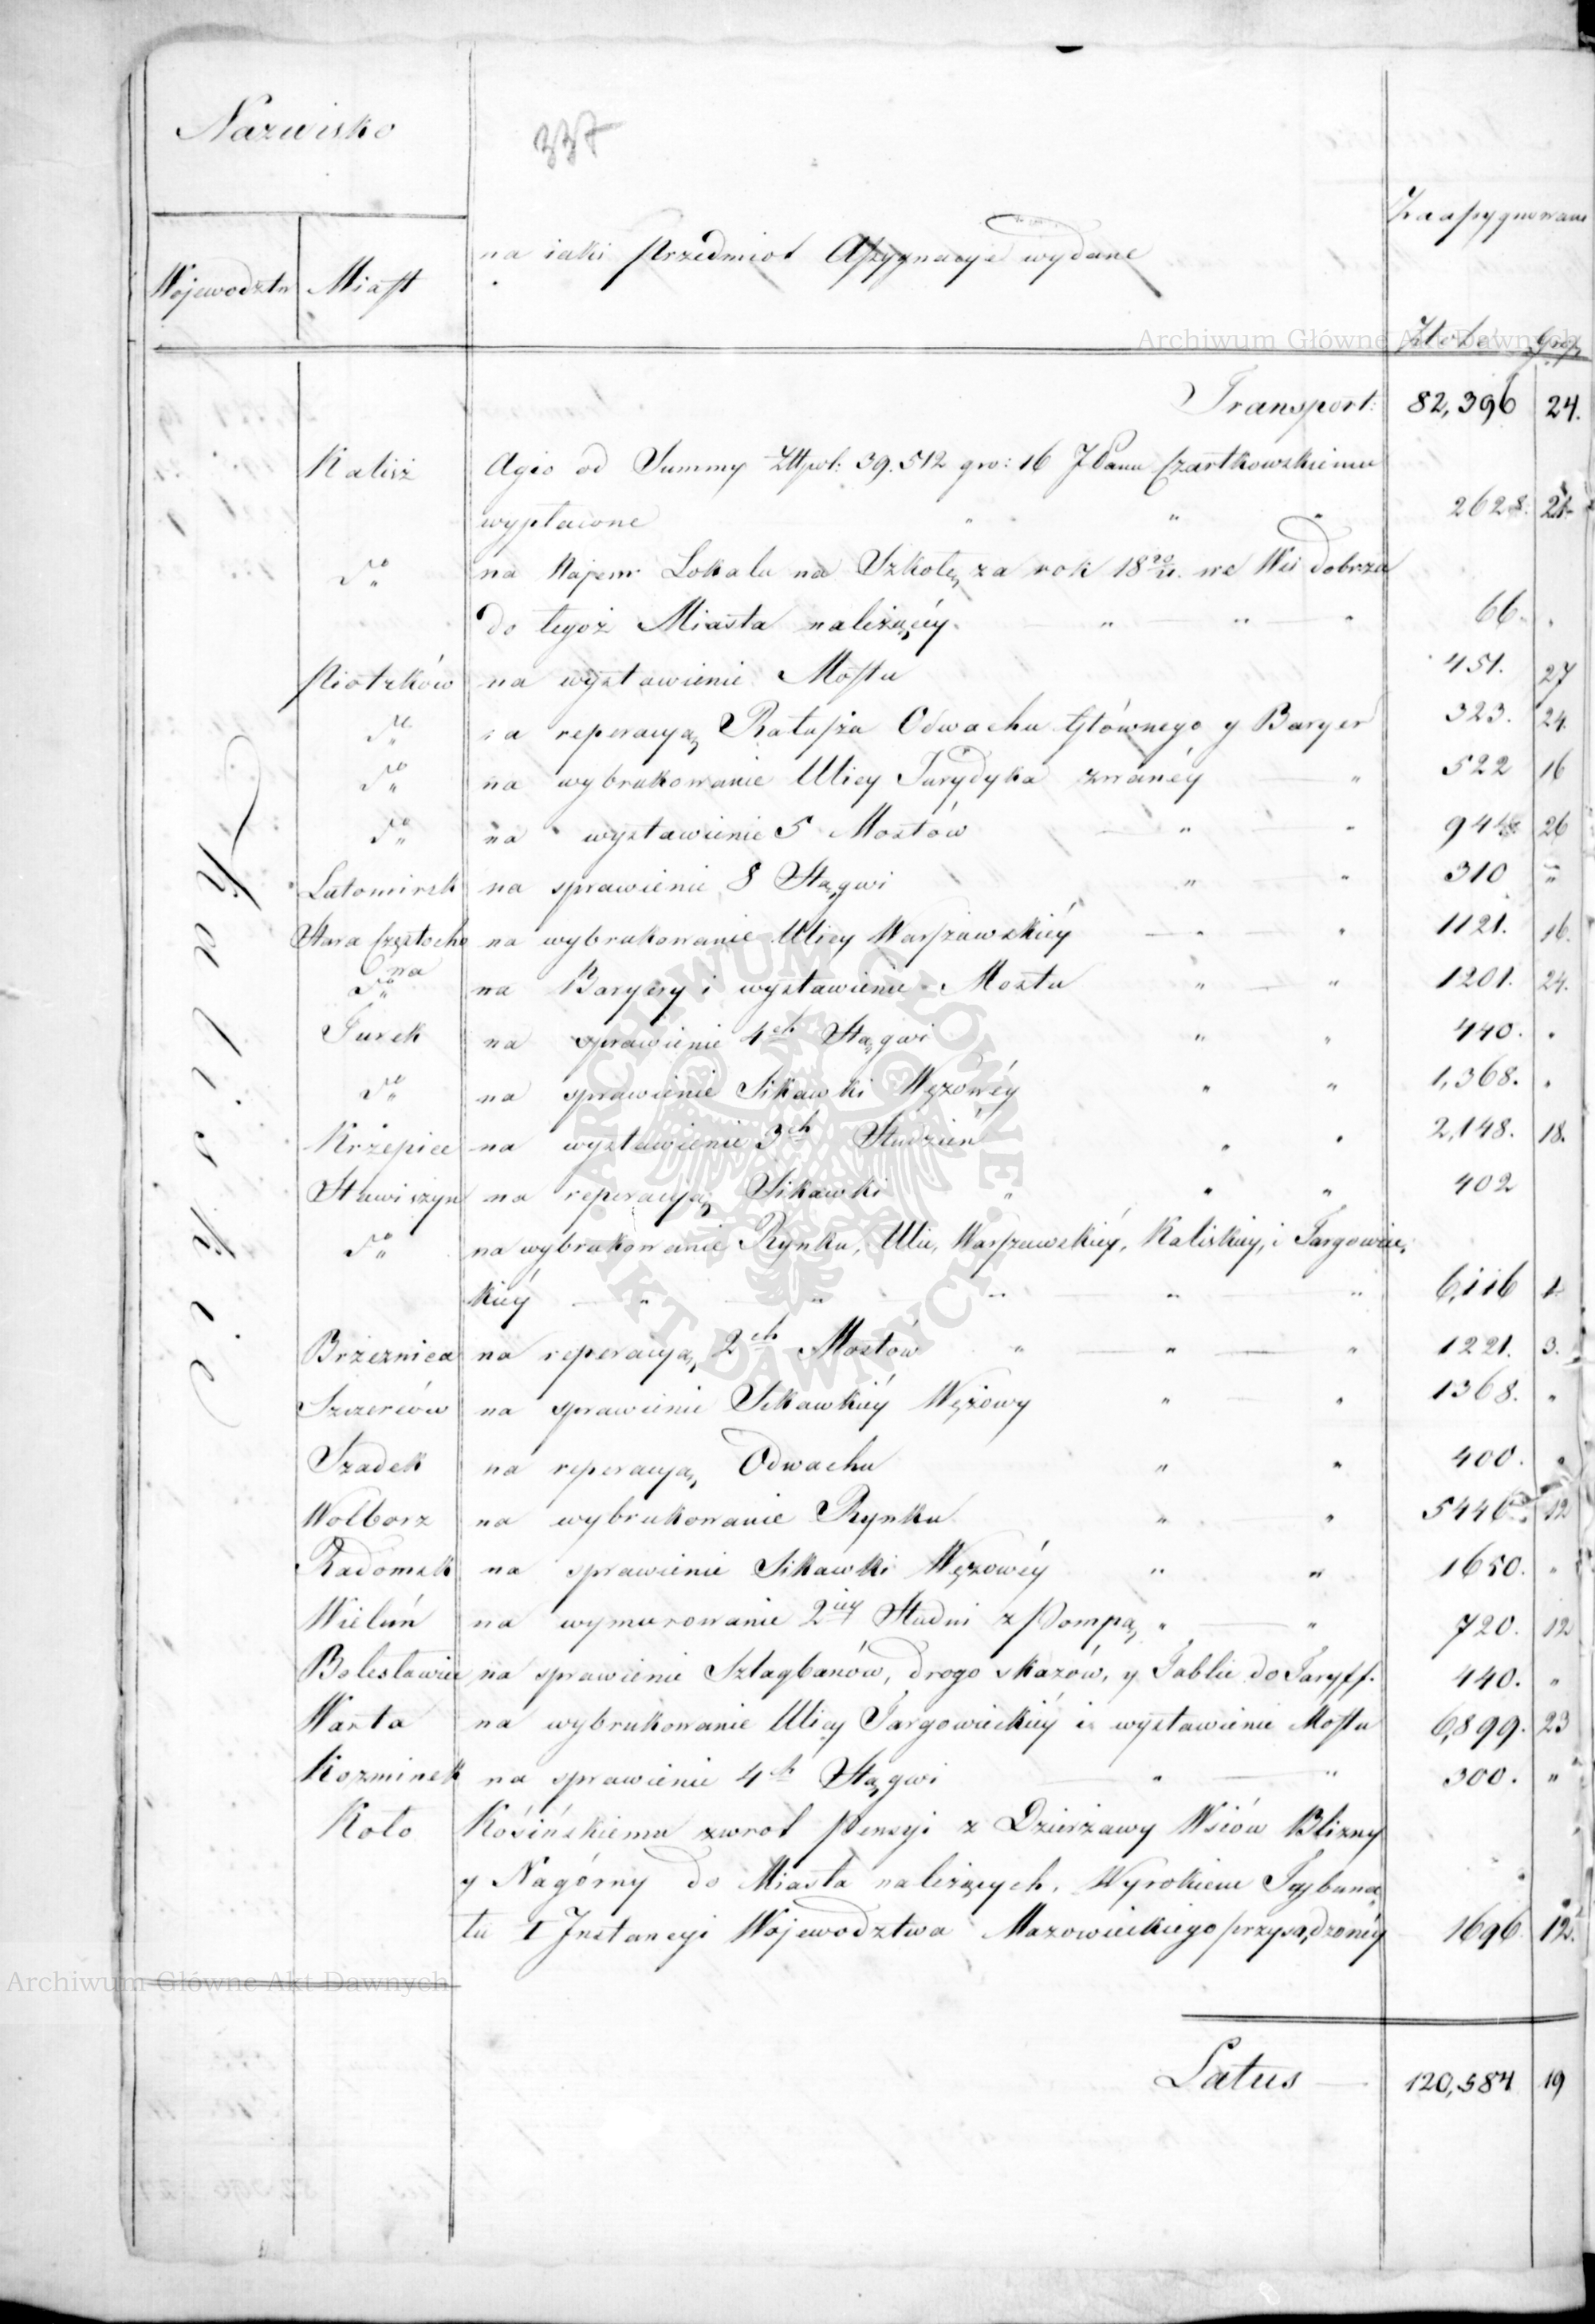 Nazwisko
337
Zaassygnowane
na iaki Przedmiot Assygnacye wydane
Województw Miast
Złote Grosz
Transport: 82,396 24.
Kalisz Agio od Summy Złtpol: 39.512 gro: 16 JPanu Czartkowskiemu
wypłacone " " " 2628. 21.
do " na Najem Lokalu na Szkołę za rok 18 20/21. we Wsi Dobrza
do tegoż Miasta należącéy. " " " 66. "
Piotrków na wystawienie Mostu 451. 27
do " na reperacyą Ratusza Odwachu Głównego y Baryer 323. 24.
do " na wybrukowanie Ulicy Jurydyka zwanéy " 522 16
do " na wystawienie 5 Mostów " " 26
Lutomirsk na sprawienie 8 Stągwi " " 310 "
Stara Częstocho na wybrukowanie Ulicy Warszawskiéy " " 1121. 16.
wa
do " na Baryery i wystawienie Mostu " " 1201. 24.
Turek na sprawienie 4ch Stągwi " " 440. "
do " na sprawienie Sikawki Wężowéy " " 1,368. "
Krzepice na wystawienie 3ch Studzień " " 2,148. 18.
Stawiszyn na reperacyą Sikawki " " " 402
do " na wybrukowanie Rynku, Ulic, Warszawskiéy, Kaliskiéy, i Targowic,
kiéy " " " " " 6,116 1.
Brzeznica na reperacyą 2ch Mostów " " " 1221. 3.
Szczerców na sprawienie Sikawkiéy Wężowy " " 1368. "
Szadek na reperacyą Odwachu " " 400. "
Wolborz na wybrukowanie Rynku " " 5446 12
Radomsk na sprawienie Sikawki Wężowéy " " 1650. "
Wieluń na wymurowanie 2iey Studni z Pompą " " 720. 12
Bolesławiec na sprawienie Sztagbanów, drogo skazów, y Tablic do Taryff. 440. "
Warta na wybrukowanie Ulicy Targowickiéy i wystawienie Mostu 6,899. 23
Kozminek na sprawienie 4ch Stągwi " " 300. "
Koło Kósińskiemu zwrot Pensyi z Dzierżawy Wsiów Blizny
y Nagórny do Miasta należących, Wyrokiem Trybuna
łu I Instancyi Województwa Mazowieckiego przysądzonéy 1696 12.
Latus 120,584 19
Kaliskiey
Archiwum Główne Akt Dawnych
Archiwum Główne Akt Dawnych
ARCHIWUM GŁÓWNE · AKT DAWNYCH ·